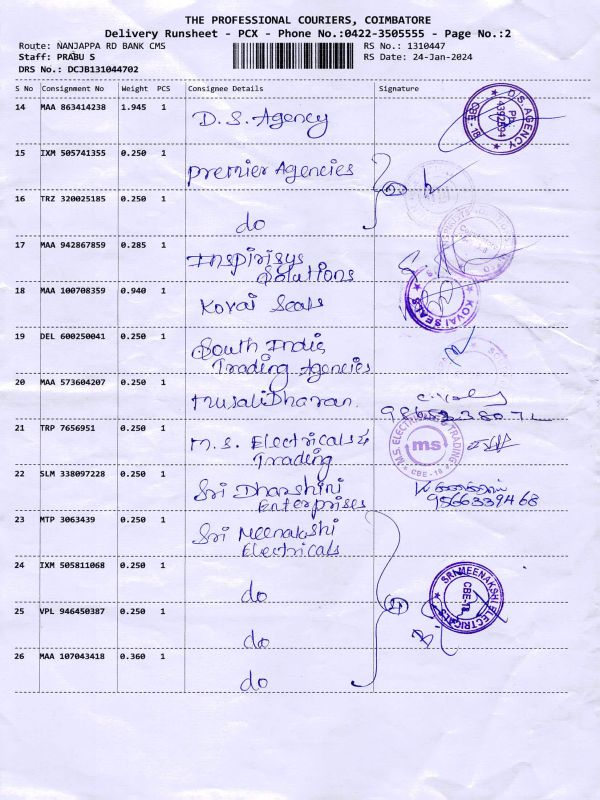 THE PROFESSIONAL COURIERS, COIMBATORE
Delivery Runsheet - PCX - Phone No.:0422-3505555 - Page No.:2
Route: NANJAPPA RD BANK CMS
RS No.: 1310447
Staff: PRABU S
RS Date: 24-Jan-2024
DRS No.: DCJB131044702
S No Consignment No Weight PCS Consignee Details Signature
14 MAA 863414238 1.945 1 D.S. Agency
D.S. AGENCY
PH
4392694
CBE-18
15 IXM 505741355 0.250 1 Premier Agencies
16 TRZ 320025185 0.250 1 do
17 MAA 942867859 0.285 1 Inspirisys
Solutions
18 MAA 100708359 0.940 1 Kovai Seals
KOVAI SEALS
19 DEL 600250041 0.250 1 South India
Trading Agencies
20 MAA 573604207 0.250 1 Murali Dharan.
21 TRP 7656951 0.250 1 M.S. Electricals &
Trading
M.S. ELECTRICALS & TRADING
ms
CBE - 18
22 SLM 338097228 0.250 1 Sri Dharshini
Enterprises
9566339468
23 MTP 3063439 0.250 1 Sri Meenakshi
Electricals
24 IXM 505811068 0.250 1 do
SRI MEENAKSHI ELECTRICALS
CBE-18
25 VPL 946450387 0.250 1 do
26 MAA 107043418 0.360 1 do